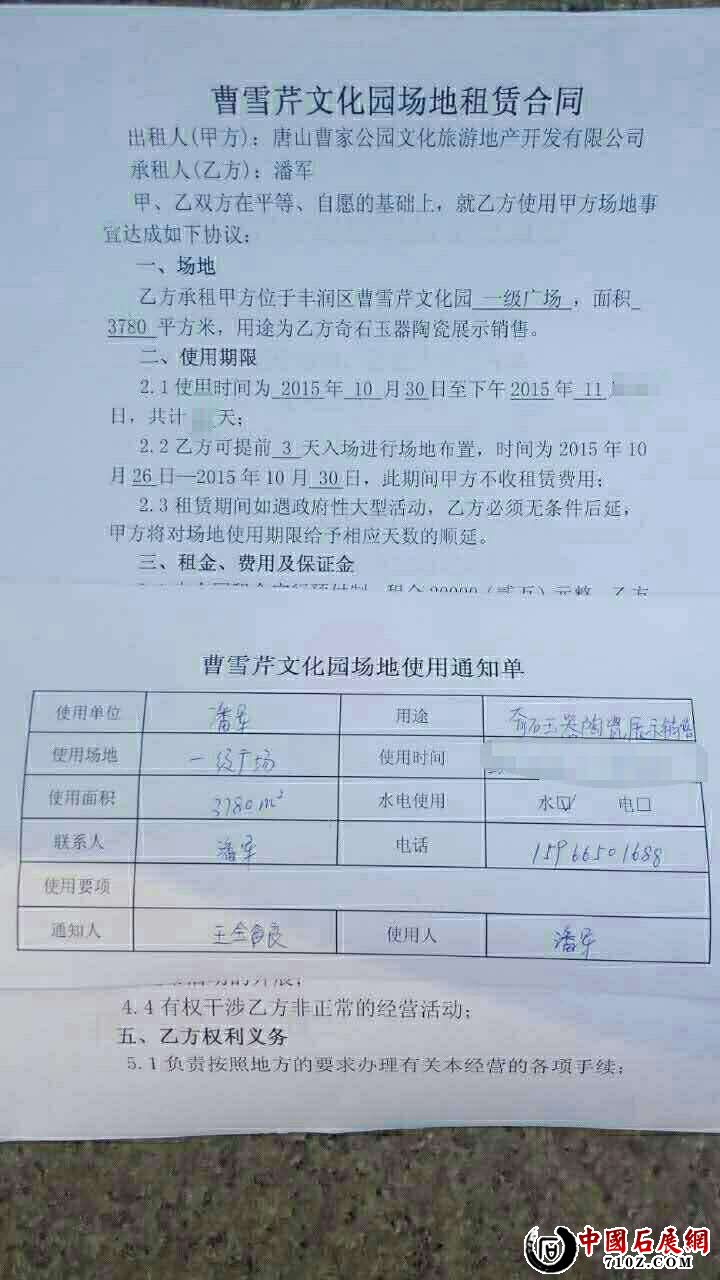 曹雪芹文化园场地租赁合同
出租人(甲方)：唐山曹家公园文化旅游地产开发有限公司
承租人(乙方)：潘军
甲、乙双方在平等、自愿的基础上，就乙方使用甲方场地事
宜达成如下协议：
一、场地
乙方承租甲方位于丰润区曹雪芹文化园 一级广场 ，面积
3780 平方米，用途为乙方奇石玉器陶瓷展示销售。
二、使用期限
2.1 使用时间为 2015 年 10 月 30 日至下午 2015 年 11
日，共计 天；
2.2 乙方可提前 3 天入场进行场地布置，时间为 2015 年 10
月 26 日—2015 年 10 月 30 日，此期间甲方不收租赁费用；
2.3 租赁期间如遇政府性大型活动，乙方必须无条件后延，
甲方将对场地使用期限给予相应天数的顺延。
三、租金、费用及保证金
曹雪芹文化园场地使用通知单
使用单位 潘军 用途 奇石玉器陶瓷展示销售
使用场地 一级广场 使用时间
使用面积 3780m² 水电使用 水☑ 电□
联系人 潘军 电话 15966501688
使用要项
通知人 王 良 使用人 潘军
4.4 有权干涉乙方非正常的经营活动；
五、乙方权利义务
5.1 负责按照地方的要求办理有关本经营的各项手续；
中國石展網
710Z.COM